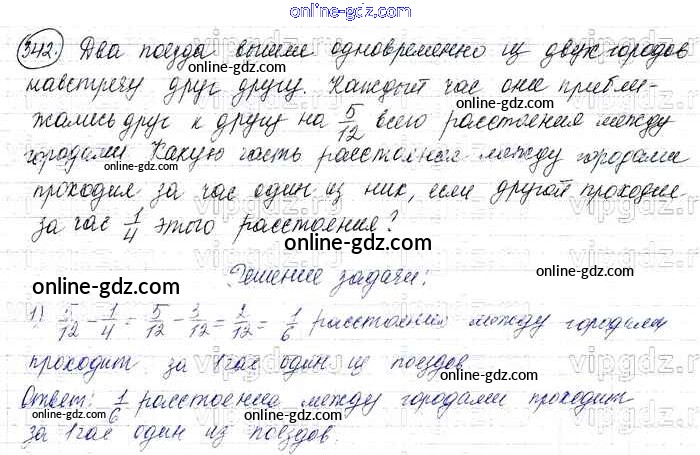 online-gdz.com
342. Два поезда вышли одновременно из двух городов
online-gdz.com
навстречу друг другу. Каждый час они прибли-
online-gdz.com
жались друг к другу на 5/12 всего расстояния между
online-gdz.com
городами. Какую часть расстояния между городами
проходил за час один из них, если другой проходил
за час 1/4 этого расстояния?
online-gdz.com
Решение задачи:
online-gdz.com
1) 5/12 - 1/4 = 5/12 - 3/12 = 2/12 = 1/6 расстояния между городами
проходит за 1 час один из поездов
online-gdz.com
Ответ: 1/6 расстояния между городами проходит
online-gdz.com
за 1 час один из поездов.
online-gdz.com
vipgdz.ru